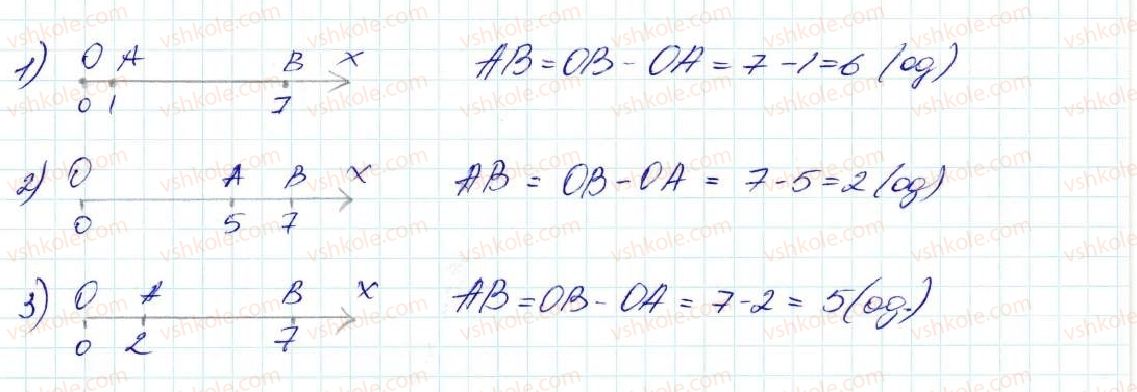 1) O A B x AB = OB - OA = 7 - 1 = 6 (од)
0 1 7
2) O A B x AB = OB - OA = 7 - 5 = 2 (од)
0 5 7
3) O A B x AB = OB - OA = 7 - 2 = 5 (од.)
0 2 7
vshkole.com